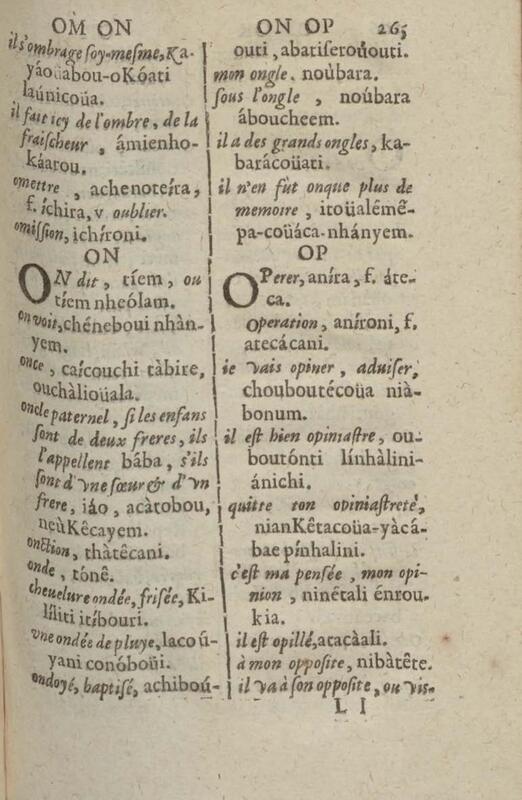 OM ON
il s'ombrage soy-mesme, Ka-
yáoüabou-oKóati
laúnicoüa.
il fait icy de l'ombre, de la
fraischeur, ámienho-
káarou.
omettre, achenoteíra,
f. íchira, v oublier.
omission, ichíroni.
ON
ON dit, tíem, ou
tíem nheólam.
on voit, chéneboui nhàn-
yem.
once, caícouchi tàbire,
ouchàlioüala.
oncle paternel, si les enfans
sont de deux freres, ils
l'appellent bába, s'ils
sont d'vne sœur & d'vn
frere, iáo, acàtobou,
neùKêcayem.
onction, thàtêcani.
onde, tónê.
cheuelure ondée, frisée, Ki-
líliti itíbouri.
vne ondée de pluye, lacoú-
yani conóboüi.
ondoyé, baptisé, achiboú-
ON OP 265
outi, abatiseroüouti.
mon ongle. noùbara.
sous l'ongle, noúbara
áboucheem.
il a des grands ongles, ka-
barácoüati.
il n'en fût onque plus de
memoire, itoüalémê-
pa-coüáca-nhányem.
OP
OPerer, aníra, f. áte-
ca.
operation, aníroni, f.
atecácani.
ie vais opiner, aduiser,
chouboutécoüa nià-
bonum.
il est bien opiniastre, ou-
boutónti línhàlini-
ánichi.
quitte ton opiniastreté,
nianKêtacoüa-yàcá-
bae pínhalini.
c'est ma pensée, mon opi-
nion, ninétali énrou-
kia.
il est opillé, atacàali.
à mon opposite, nibàtête.
il va à son opposite, ou vis-
L l